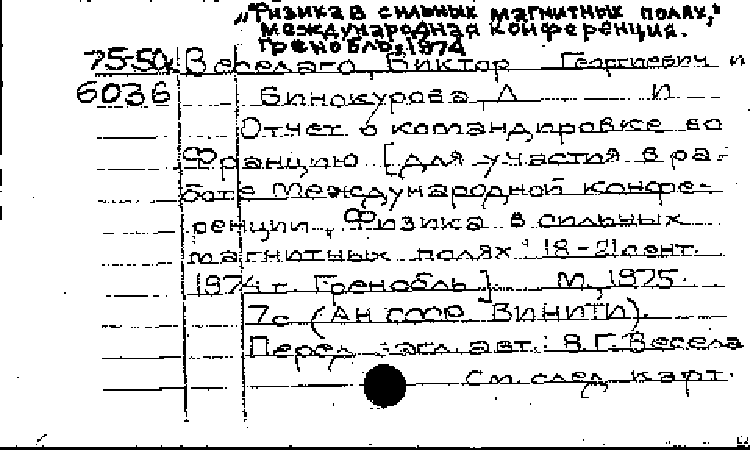 „Физика в сильных магнитных полях,"
международная конференция.
Гренобль, 1974
75-50к Веселаго, Виктор Георгиевич и
6036 Винокурова, Л И
Отчет о командировке во
Францию [для участия в ра-
боте Международной конфе-
ренции „Физика в сильных
магнитных полях" 18-21 сент.
1974 г. Гренобль] М., 1975.
7с (АН СССР. ВИНИТИ).
Перед загл. авт.: В.Г. Весела
См. след. карт.